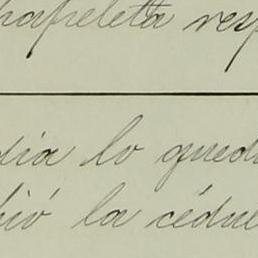 papeleta resp
dia lo qued
bió la cédul